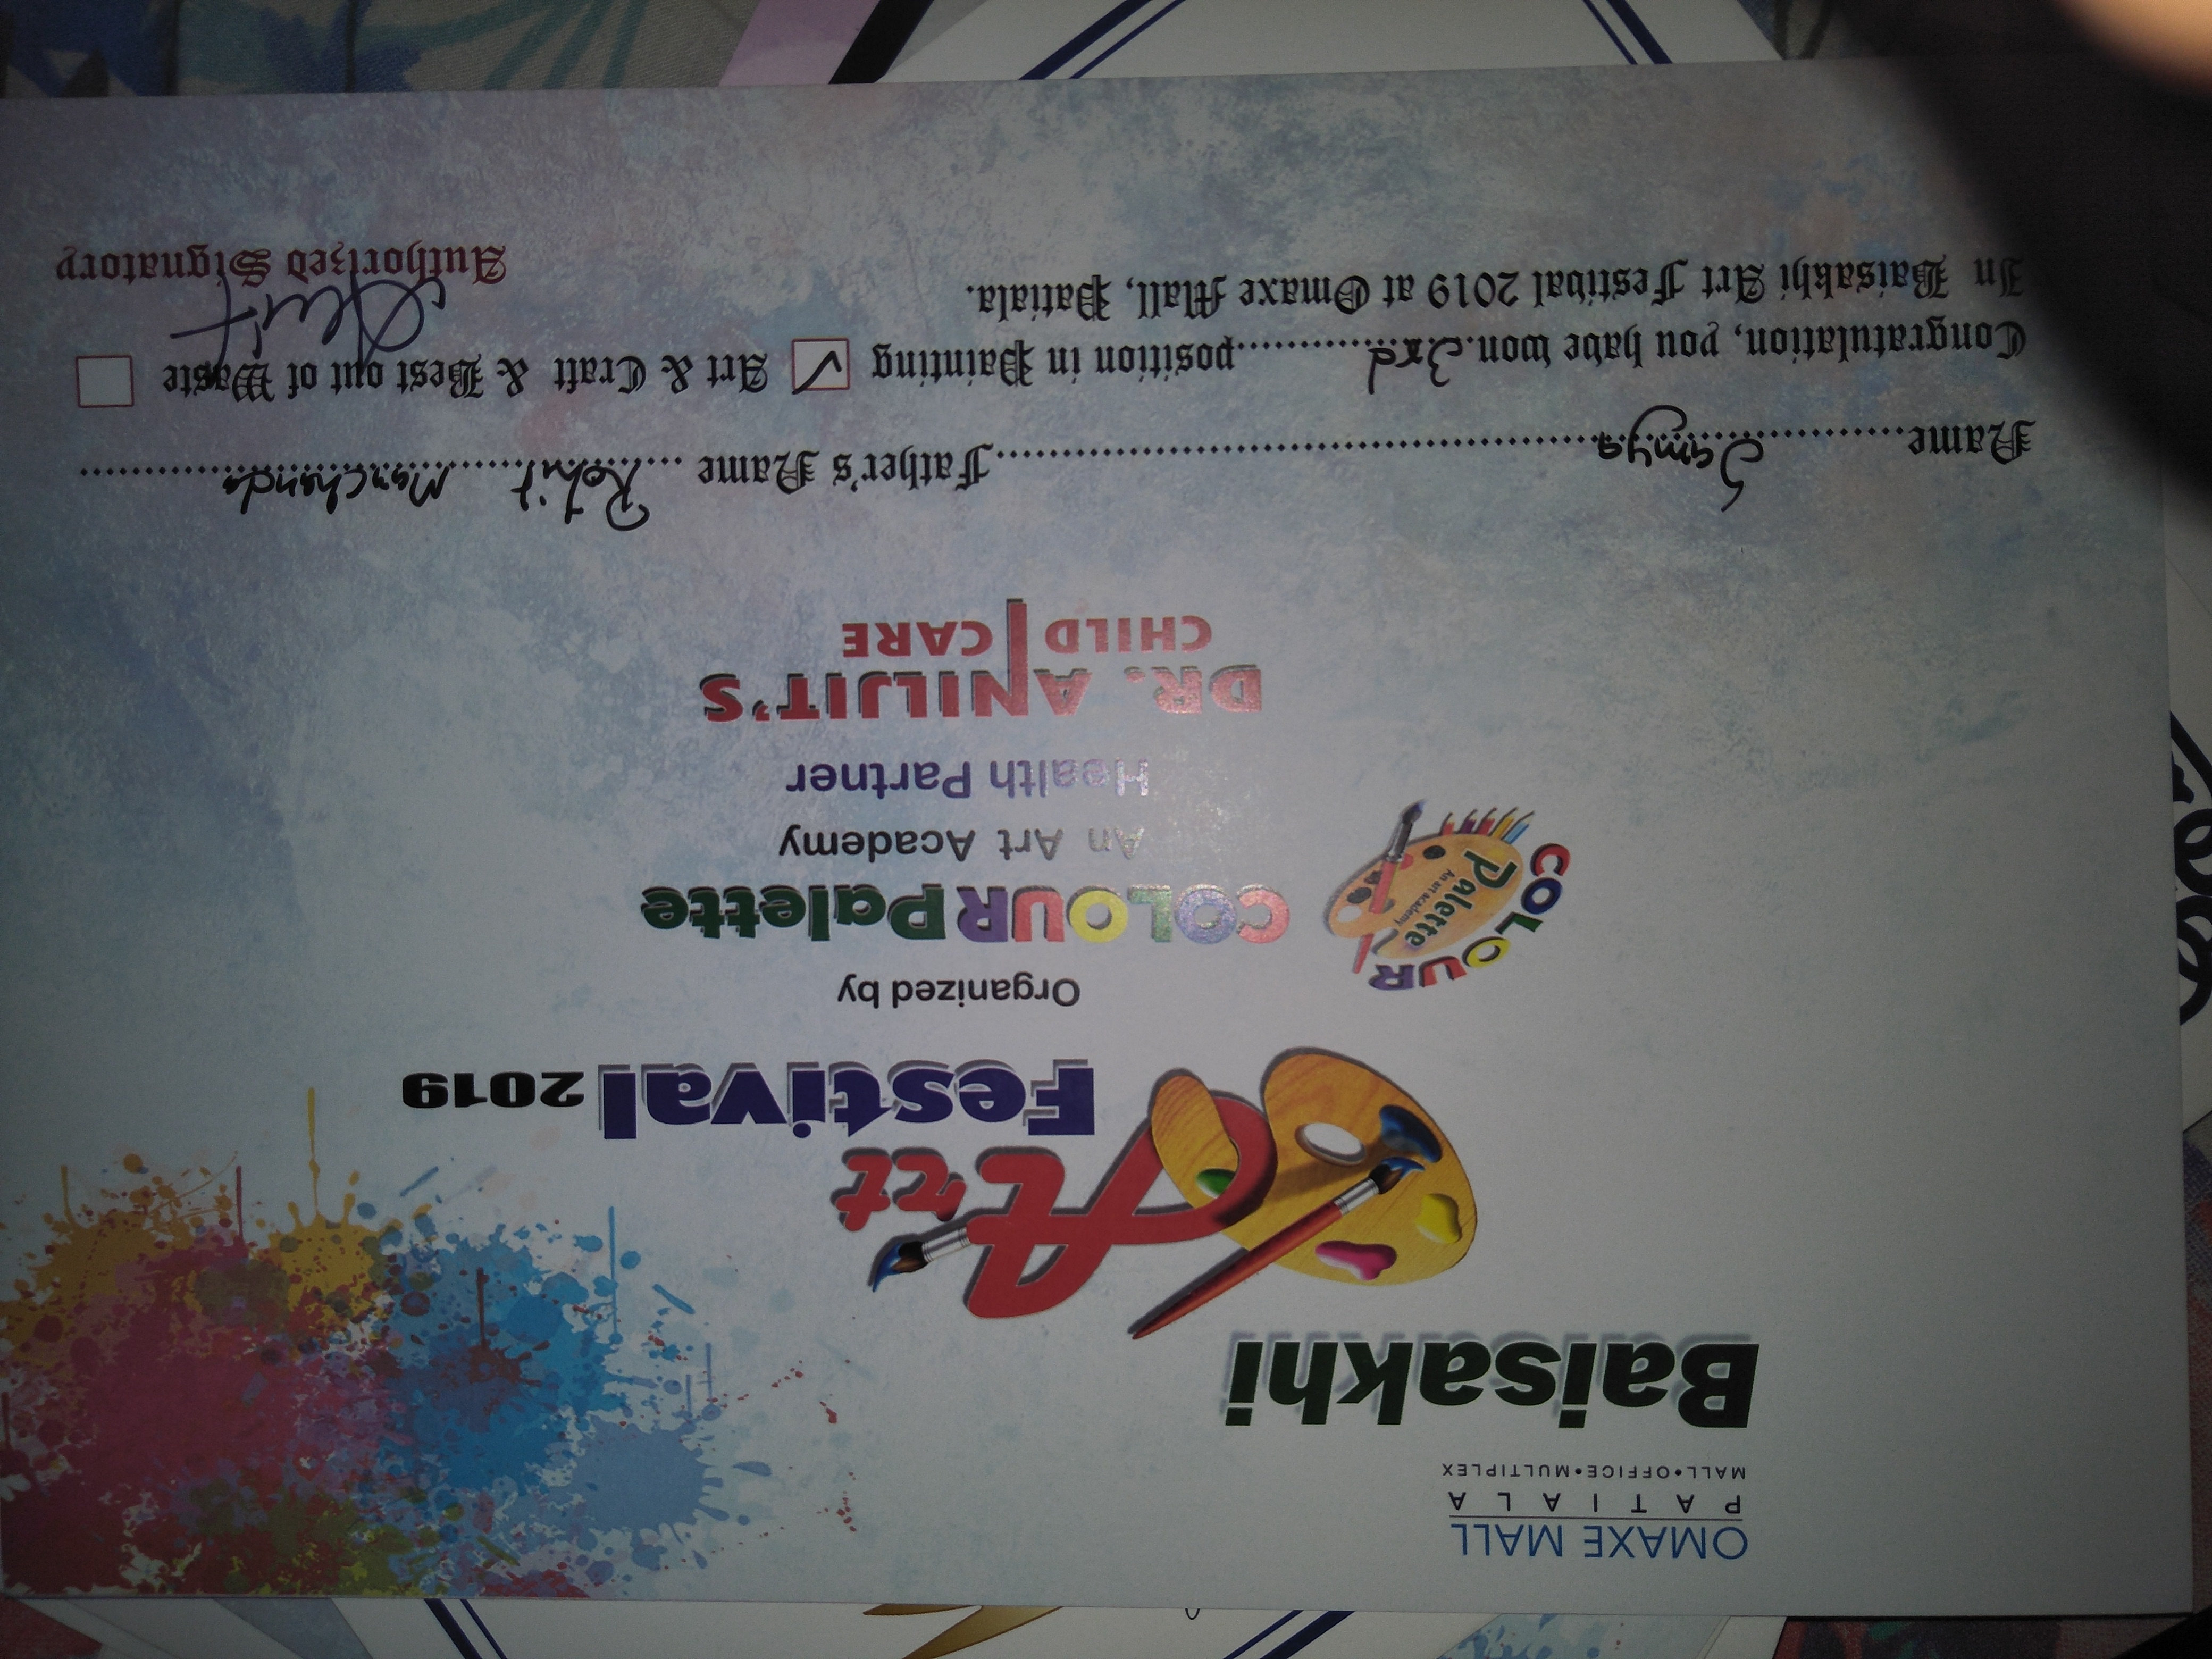 OMAXE MALL
PATIALA
MALL•OFFICE•MULTIPLEX
Baisakhi
Art
Festival 2019
Organized by
COLOUR Palette
An art academy
COLOUR Palette
An Art Academy
Health Partner
DR. ANILJIT'S
CHILD CARE
Name............Samya............Father's Name ....Rohit....Manchanda............
Congratulation, you have won..3rd............position in Painting ✓ Art & Craft & Best out of Waste
In Baisakhi Art Festival 2019 at Omaxe Mall, Patiala.
Authorized Signatory